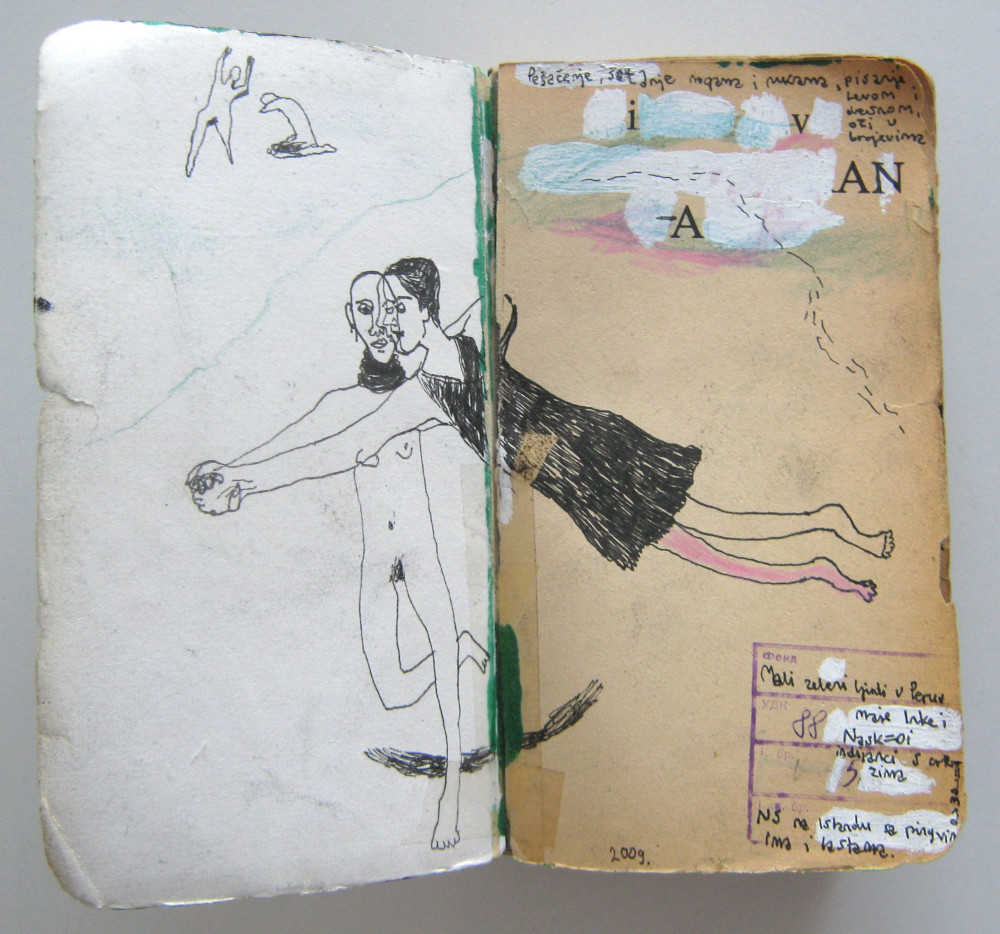 Pešačenje, šetanje nogama i rukama, pisanje
levom i
desnom,
oči u
brojevima
i v
AN
A
ФОНД
Mali zeleni ljudi u Peruu
УДК
88 maje Inke i
Nask=oi
indijanci s crtežima
NS na Islandu sa pingvin
ima i lastama.
2009.